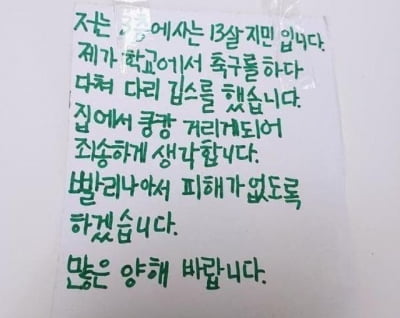 저는 층에사는 13살 지민 입니다.
제가 학교에서 축구를 하다
다쳐 다리 깁스를 했습니다.
집에서 쿵캉 거리게되어
죄송하게 생각합니다.
빨리나아서 피해가없도록
하겠습니다.
많은 양해 바랍니다.